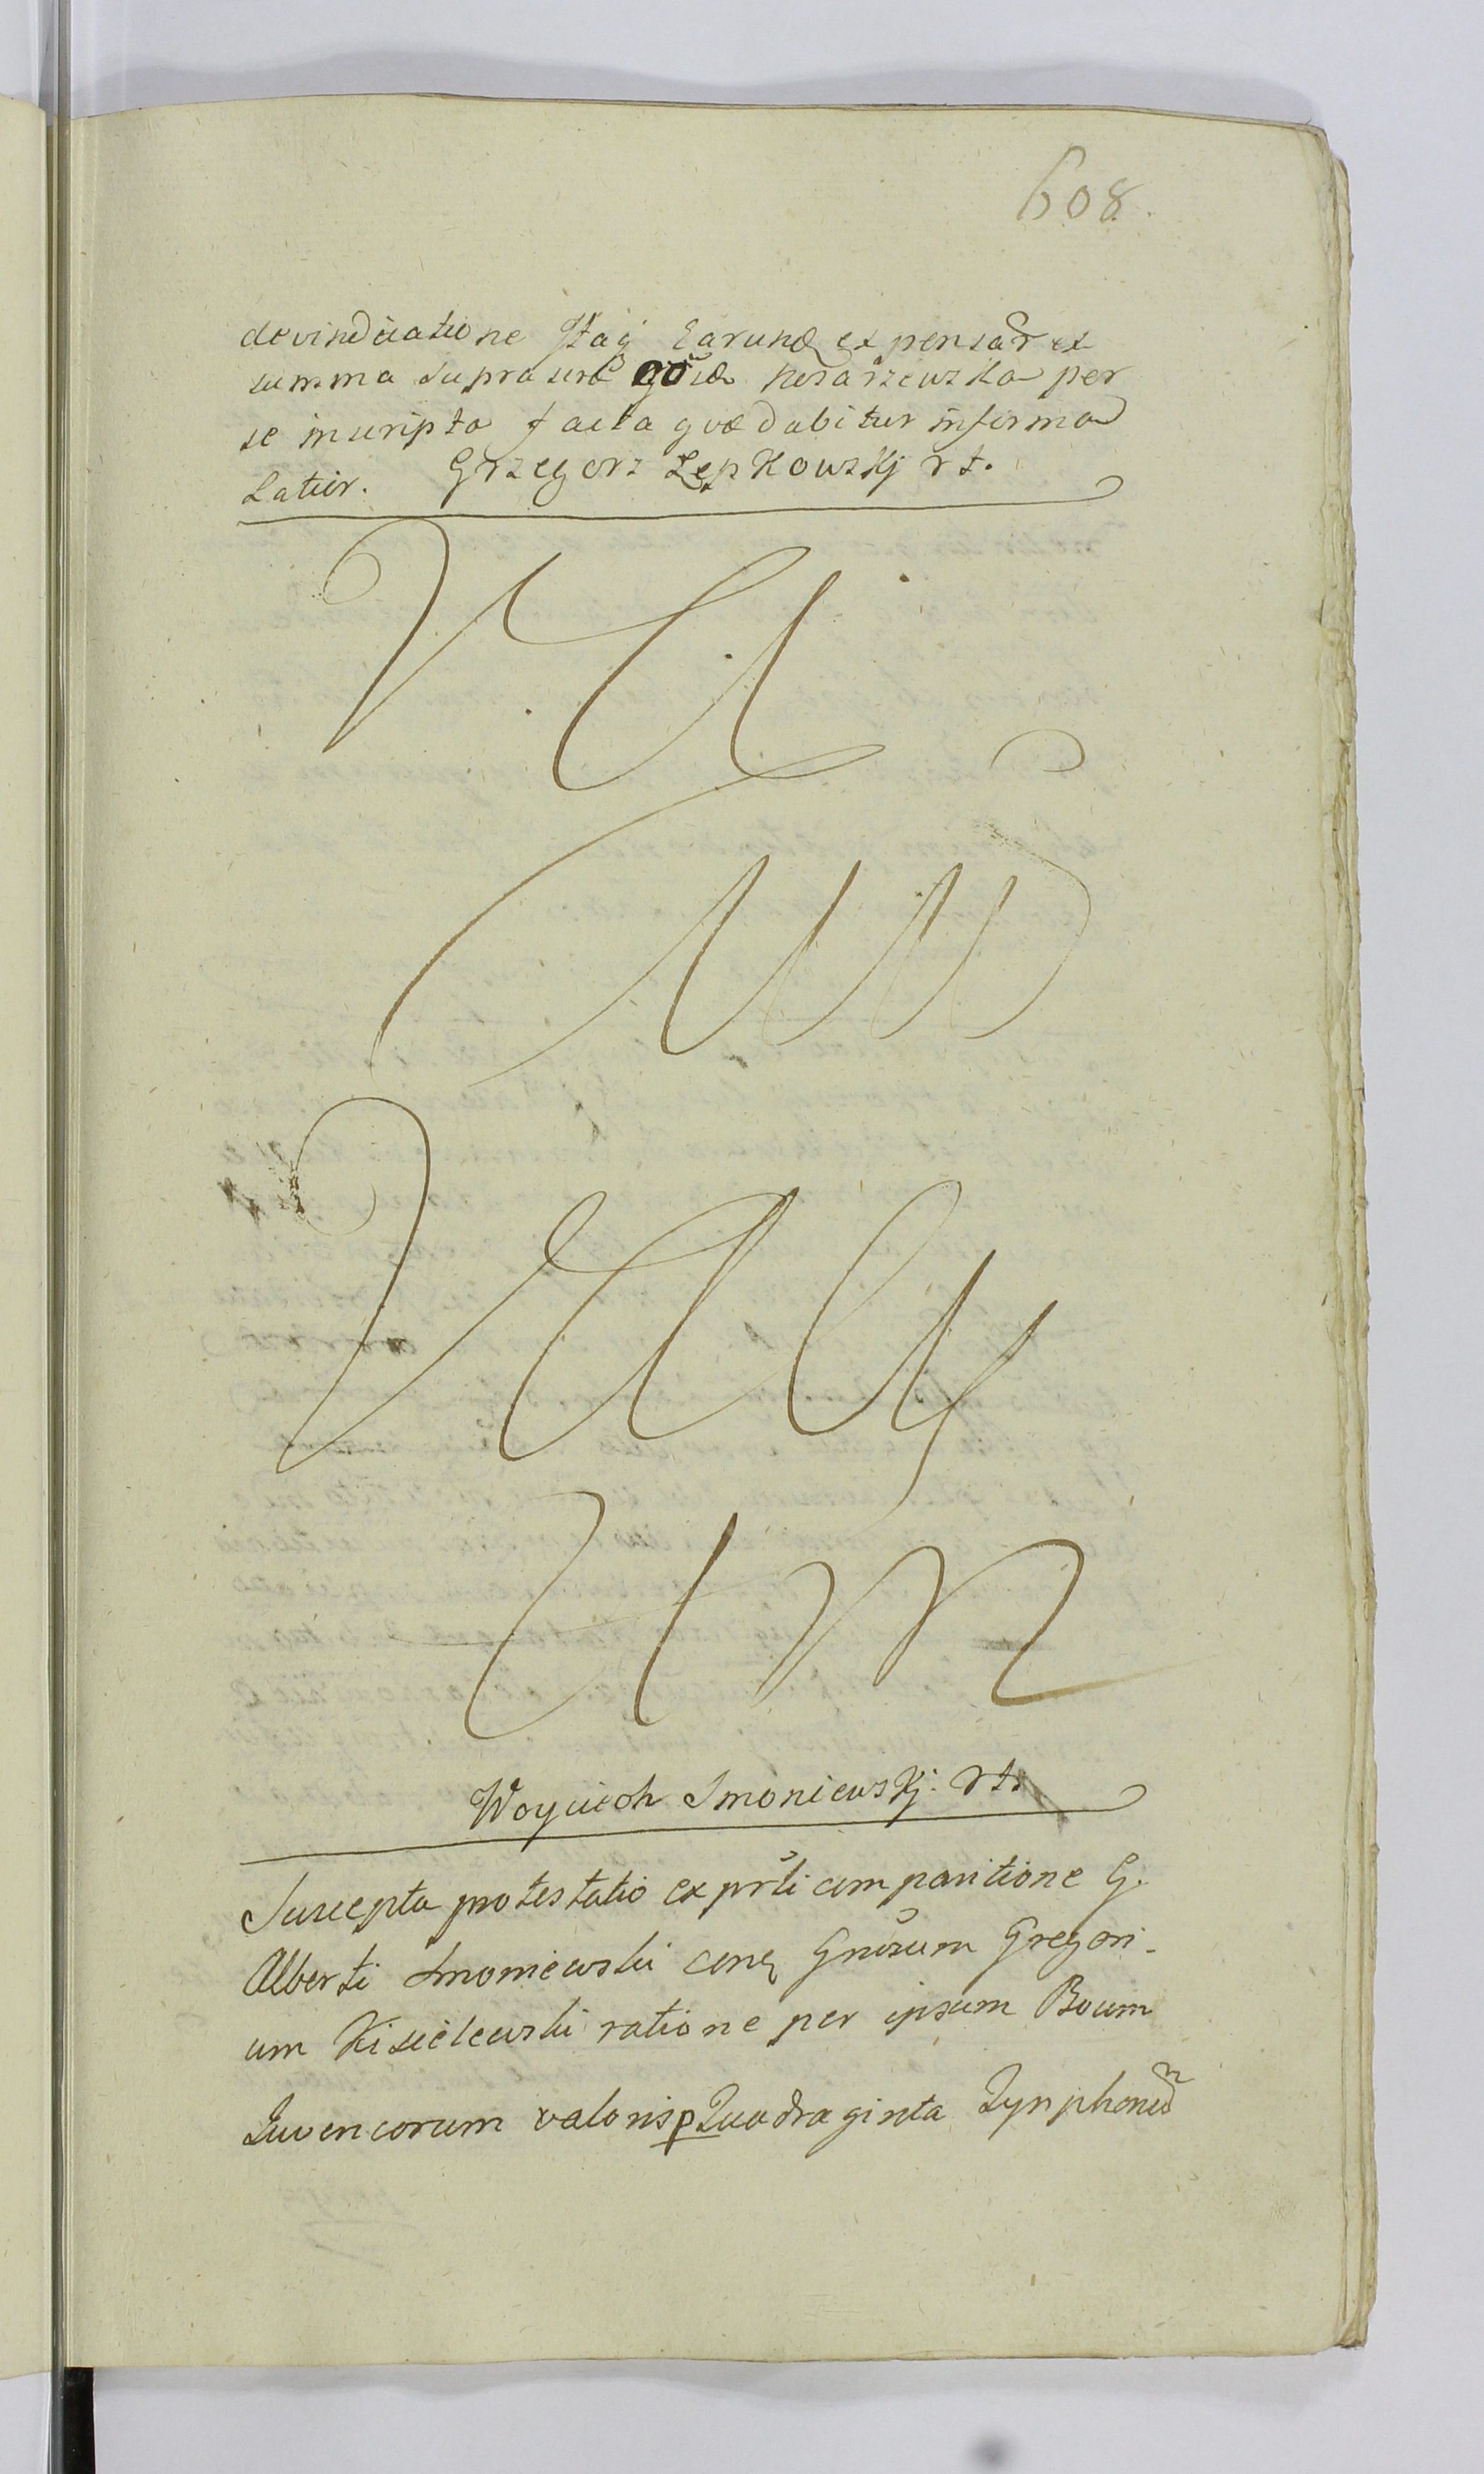 608.
devindicatione Itaq earund expensar ex
summa suprascrt Kosarzewska per
se inscripto facta quæ dabitur informa
Latior. Grzegorz Łępkowskj rt.
Vacuum
Vacuum
Woyciech Smoniewskj. rt.
Suscepta protestatio ex prsti comparitione G.
Alberti Smoniewski conq Gnosum Gregori-
um Kisielewski ratione per ipsum Boum
Juvencorum valoris p Quadraginta Tynphonum